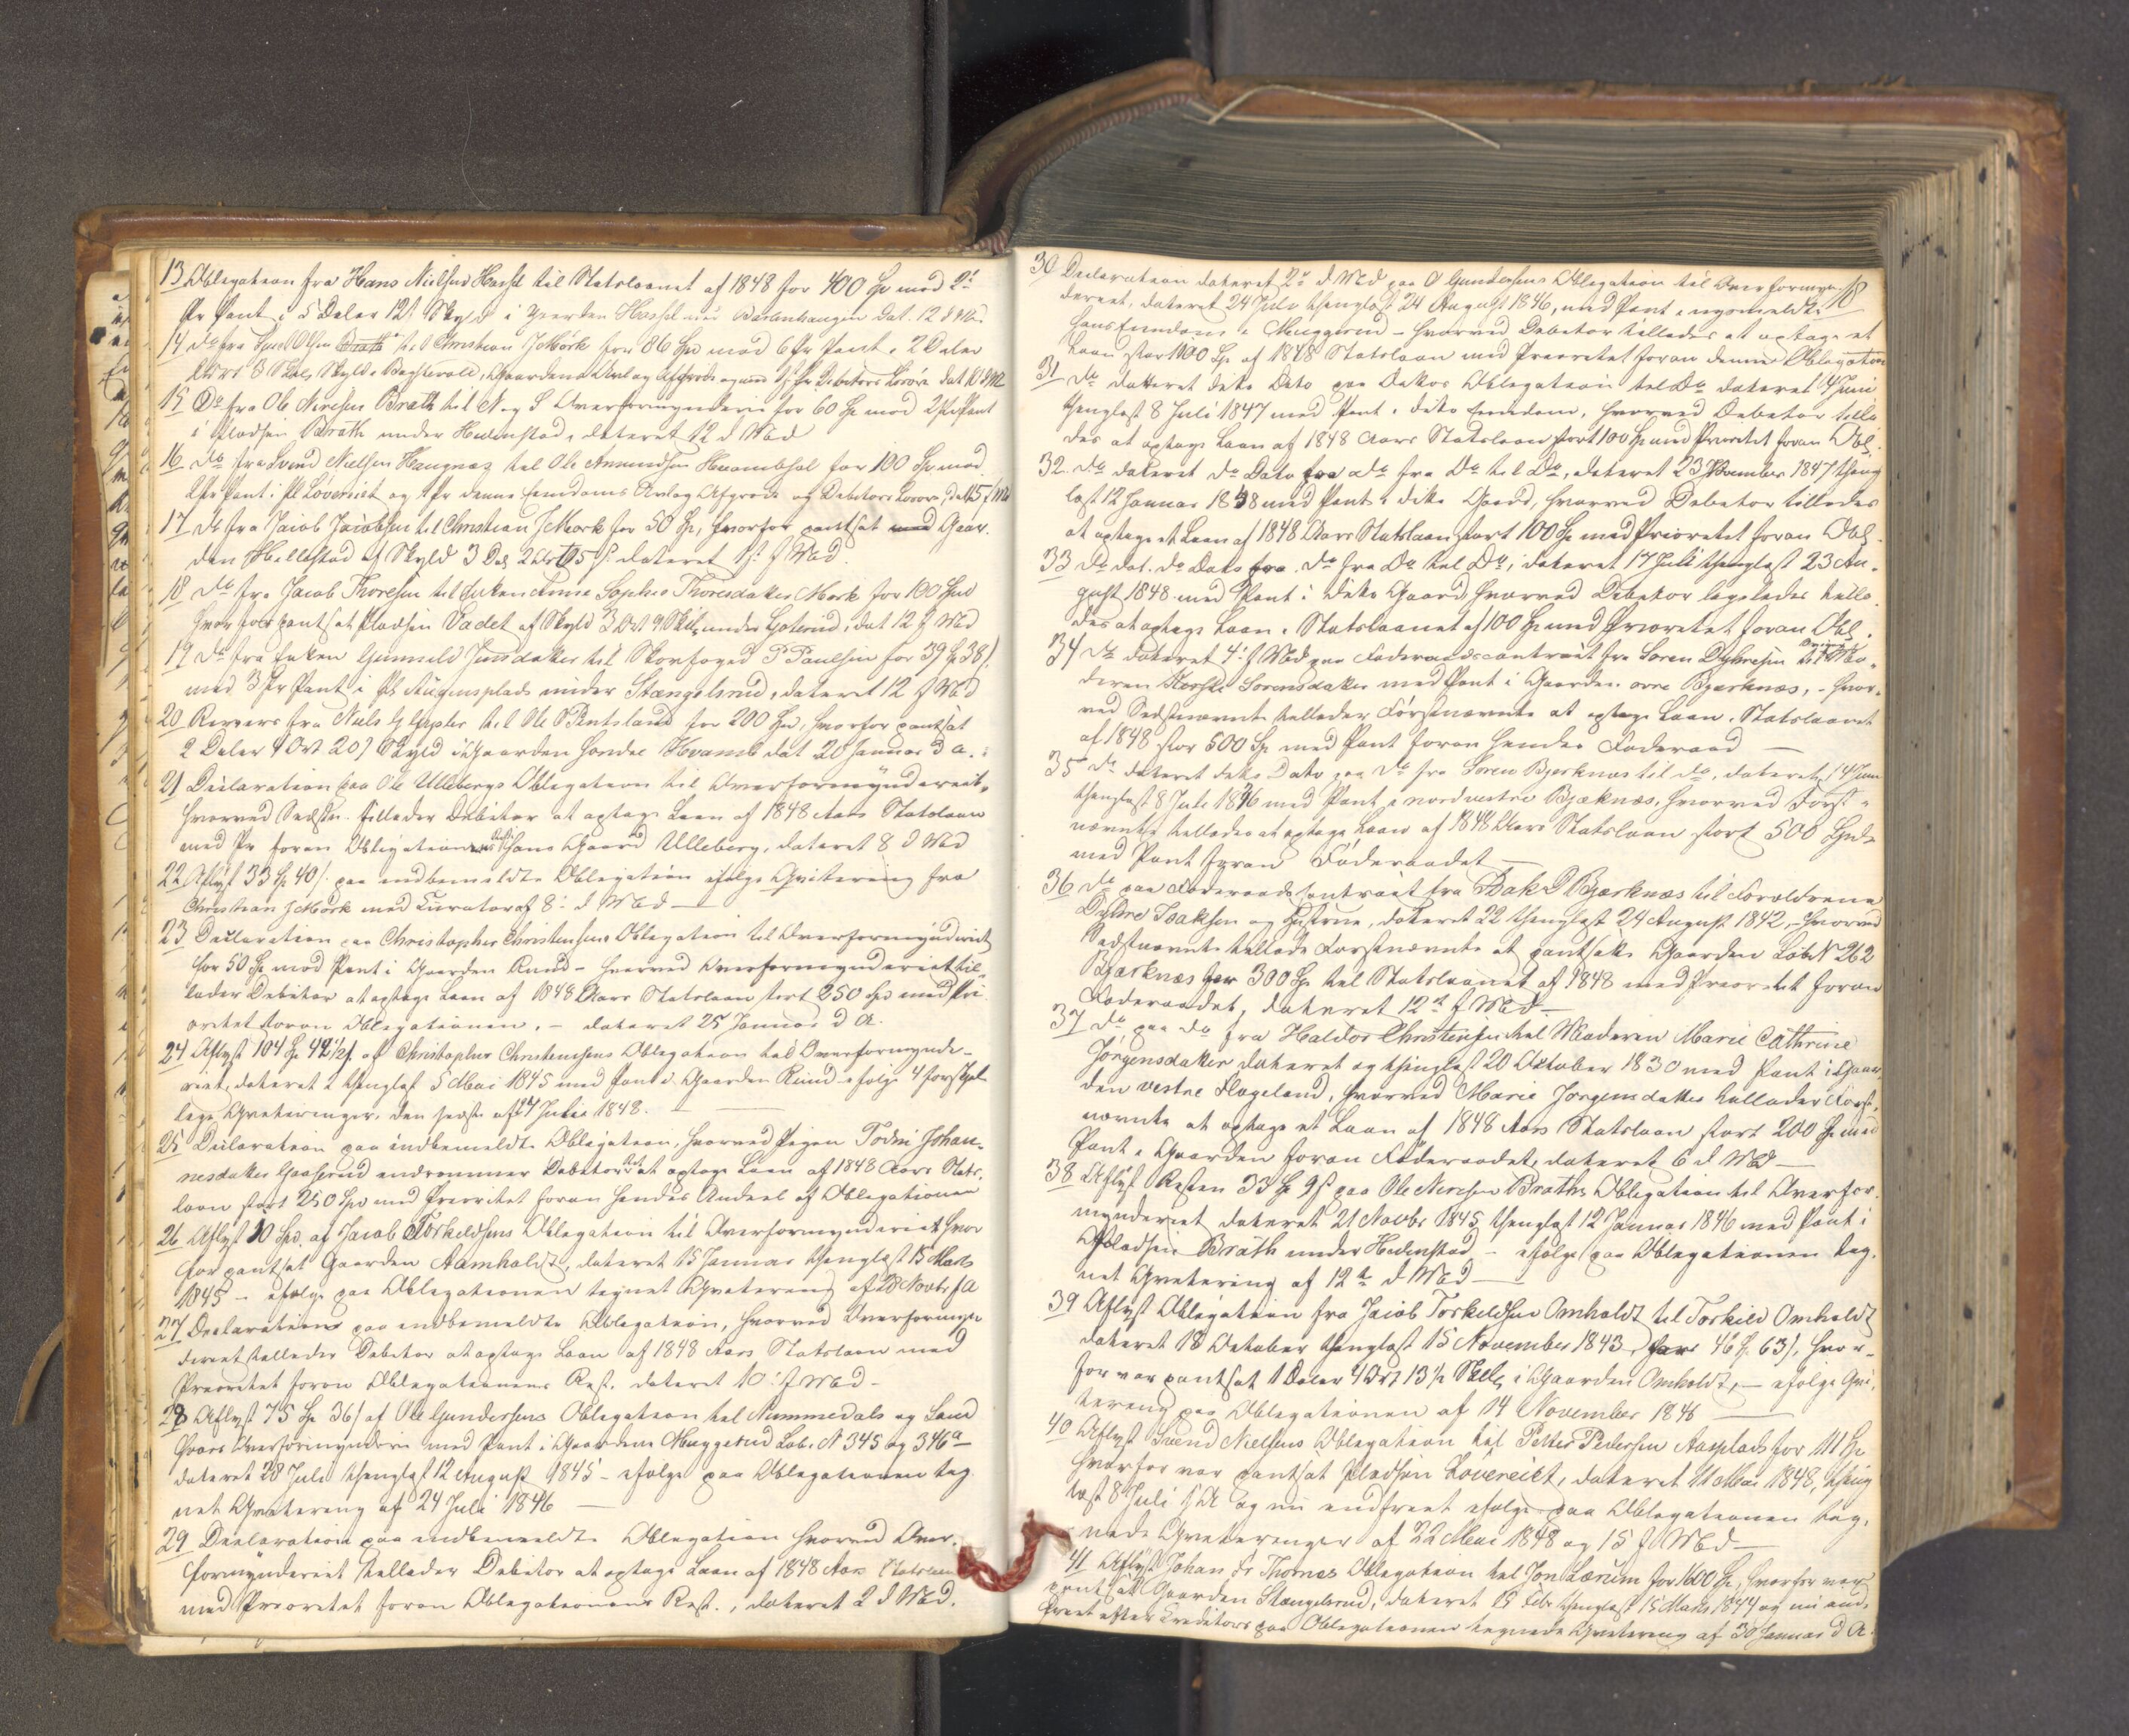 13 Obligation fra Hans Nielsen Hassel til Statslaanet af 1848 for 400 Sp mod 2s
Pr Pant i 5 Daler 12s Skyld i Gaarden Hassel med Barlinhaugen dat. 12 d Md.
14 do fra Olsen Braate til Christian J Mörk for 86 Spd mod 6 Pr Pant i 2 Daler
3 Skyld i Gaardens Avling Afgröde og Debitors Lösöre dat 10 d Md
15 Do fra Ole Nirisen Braath til N. og S Overformynderie for 60 Sp mod 2 Pr Pant
i Pladsen Braath under Hedenstad, dateret 12 d Md
16 do fra Svend Nielsen Haugnæs til Ole Amundsen for 100 Sp mod
Pr Pant i Pl Lövereiet og 1 Pr denne Eiendoms Avling Afgröde og Debitors Lösöre, dat 15 f Md
17 do fra Jacob Jacobsen til Christian J Mörk for 50 Sp, hvorfor pantsat med Gaar-
den Hellestad af Skyld 3 Dal 2 Ort 5 s. dateret 1st f Md.
18 do fra Jacob Thoresen til Enken Anne Sophie Thoresdatter Mörk for 100 Spd
hvorfor pantsat Pladsen Vadet af Skyld 3 Ort 9 Skill under Goterud, dat 12 f Md
19 do fra Enken Gunnild Jensdatter til Skovfoged P Paulsen for 39 Sp 38 s.
mod 3 Pr Pant i Pl Augensplads under Stangelsrud, dateret 12 f Md
20 Revers fra Niels G til Ole P for 200 Spd, hvorfor pantsat
2 Daler 1 Ort 20 s Skyld i Gaarden söndre Kvamb dat 20 Januar d A.
21 Declaration paa Ole Ullebergs Obligation til Overformynderiet,
hvorved Sidstn. tillader Debitor at optage Laan af 1848 Aars Statslaan
med Pr foran Obligationen i hans Gaard Ulleberg, dateret 8 d Md
22 Aflyst 33 Sp 40 s. paa indbemeldte Obligation ifölge Qvitering fra
Christian J Mörk med Curator af 8de d Md
23 Declaration paa Christopher Christensens Obligation til Overformynderiet
for 50 Sp mod Pant i Gaarden Rund – hvorved Overformynderiet til-
lader Debitor at optage Laan af 1848 Aars Statslaan stort 250 Spd med Pri-
oritet foran Obligationen. – dateret 25 Januar d A.
24 Aflyst 104 Sp 44 1/2 s. af Christopher Christensens Obligation til Overformynde-
riet, dateret 2 thinglyst 5 Mai 1845 med Pant i Gaarden Rund ifölge 4 forskjel-
lige Qviteringer, den sidste af 14 Julii 1848.
25 Declaration paa indbemeldte Obligation, hvorved Pigen Todni Johan-
nesdatter Gaaserud indrömmer Debitor Ret at optage Laan af 1848 Aars Stats-
laan stort 250 Spd med Prioritet foran hendes Andeel af Obligationen
26 Aflyst 10 Spd. af Jacob Torkeldsens Obligation til Overformynderiet hvor
for pantsat Gaarden Aamholdt, dateret 15 Januar thinglæst 15 Marts
1845 – ifölge paa Obligationen tegnet Qvitering af 28 Novbr f A
27 Declaration paa indbemeldte Obligation, hvorved Overformyn-
deriet tillader Debitor at optage Laan af 1848 Aars Statslaan med
Prioritet foran Obligationens Rest. dateret 10de f Md –
28 Aflyst 75 Sp 36 s af Ole Gundersens Obligation til Nummedals og Sand
sværs Overformynderie med Pant i Gaarden Muggerud Löb. N 345 og 346a –
dateret 28 Juli thinglyst 12 August 1845 – ifölge paa Obligationen teg
net Qvitering af 24 Juli 1846
29 Declaration paa indbemeldte Obligation hvorved Over-
formynderiet tillader Debitor at optage Laan af 1848 Aars Statslaan
med Prioritet foran Obligationens Rest., dateret 2 d Md.
18
30 Declaration dateret 2de d Md paa O Gundersens Obligation til Overformyn-
deriet, dateret 24 Julii thinglyst 24 August 1846, med Pant i nysmeldte
hans Eiendom i Muggerud – hvorved Debitor tillades at optage et
Laan stor 100 Sp af 1848 Statslaan med Prioritet foran denne Obligation
31 Do dateret dito Dato paa Dattos Obligation til Do dateret 4 Juni
thinglæst 8 Juli 1847 med Pant i dito Eiendom, hvorved Debitor tilla
des at optage Laan af 1848 Aars Statslaan stort 100 Sp med Prioritet foran Obl.
32. Do dateret do Dato fra do fra Do til Do, dateret 23 November 1847 thing
læst 12 Januar 1848 med Pant i dito Gaard, hvorved Debitor tillades
at optage et Laan af 1848 Aars Statslaan stort 100 Sp med Prioritet foran Obl.
33 Do dat. do Dato fra do fra Do til Do, dateret 17 Juli thinglæst 23 Au-
gust 1848 med Pant i dito Gaard, hvorved Debitor ligeledes tilla
des at optage Laan i Statslaanet af 100 Sp med Prioritet foran Obl.
34 Do dateret 4de f Md paa Föderaadscontract fra Sören Dyhresen til Mo-
deren Kirsti Sörensdatter med Pant i Gaarden övre Bjerknæs, – hvor-
ved Sidstnævnte tillader Förstnævnte at optage Laan i Statslaanet
af 1848 stor 500 Sp med Pant foran hendes Föderaad
35 Do dateret dito Dato paa do fra Sören Bjerknæs til do, dateret 14 Juni
thinglæst 8 Juli 1846 med Pant i nordvestre Bjerknæs, hvorved Först-
nævnte tillades at optage Laan af 1848 Aars Statslaan stort 500 Spd
med Pant foran Föderaadet
36 Do paa Föderaadscontract fra Isak D Bjerknæs til Forældrene
Dyhre Isaksen og Hustrue, dateret 22 thinglæst 24 August 1842, – hvorved
Sidstnævnte tillade Förstnævnte at pantsætte Gaarden Löb N 262
Bjerknæs for 300 Sp til Statslaanet af 1848 med Prioritet foran
Föderaadet, dateret 12te f Md –
37 Do paa do fra Haldor Christensen til Moderen Marie Cathrine
Jörgensdatter dateret og thinglæst 20 October 1830 med Pant i Gaar-
den vestre Flogeland, hvorved Marie Jörgensdatter tillader Först-
nævnte at optage et Laan af 1848 Aars Statslaan stort 200 Sp med
Pant i Gaarden foran Föderaadet, dateret 6 d Md
38 Aflyst Resten 33 Sp 9 s paa Ole Nirisen Braaths Obligation til Overfor-
mynderiet dateret 21 Novbr 1845, thinglæst 12 Januar 1846 med Pant i
Pladsen Braath under Hedenstad – ifölge paa Obligationen teg-
net Qvitering af 12te d Md
39 Aflyst Obligation fra Jacob Torkeldsen Omholdt til Torkild Omholdt
dateret 18 October thinglæst 15 November 1843, for 46 Sp 63 s, hvor-
for var pantsat 1 Daler 4 Ort 13 1/2 Skill i Gaarden Omholdt, – ifölge Qvi-
tering paa Obligationen af 14 November 1846
40 Aflyst Svend Nielsens Obligation til Petter Pedersen Aasplads for 111 Sp
hvorfor var pantsat Pladsen Lövereiet, dateret 11 Mai 1848, thing
læst 8 Juli s A og nu indfriet ifölge paa Obligationen teg-
nede Qviteringer af 22 Mai 1848 og 15 f Md –
41 Aflyst Johan Fr Thornes Obligation til Jon Lærum for 1600 Sp, hvorfor var
pantsat Gaarden Stangelsrud, dateret 15 Febr thinglæst 15 Marts 1844 og nu ind-
friet efter Creditors paa Obligationen tegnede Qvitering af 30 Januar d A.